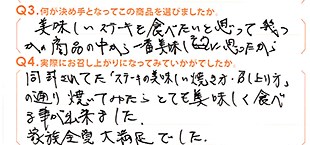 Q3.何が決め手となってこの商品を選びましたか。
美味しいステーキを食べたいと思って幾つ
かの商品の中から一番美味しそうに思ったから
Q4.実際にお召し上がりになってみていかがでしたか。
同封されてた「ステーキの美味しい焼き方・召し上り方」
の通り焼いてみたらとても美味しく食べ
る事が出来ました。
家族全員大満足でした。